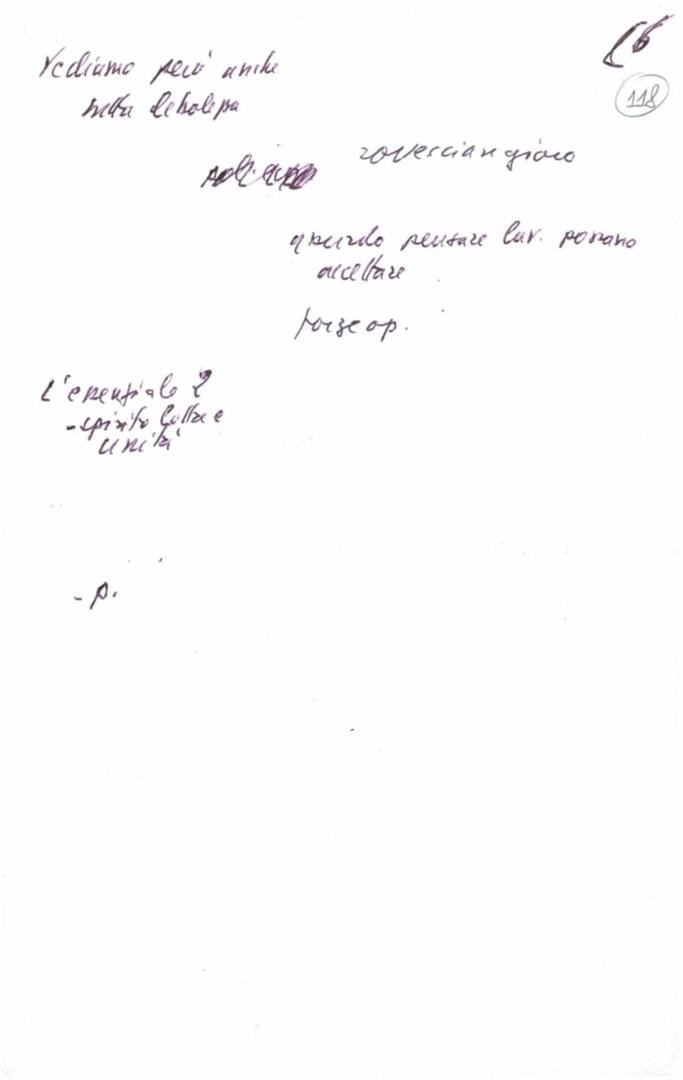 16
118
Vediamo però anche
tutta debolezza
rovesciare gioco
assurdo pensare lav. possano
accettare
forze op.
L'essenziale è
- spirito lotta e
unità
- p.